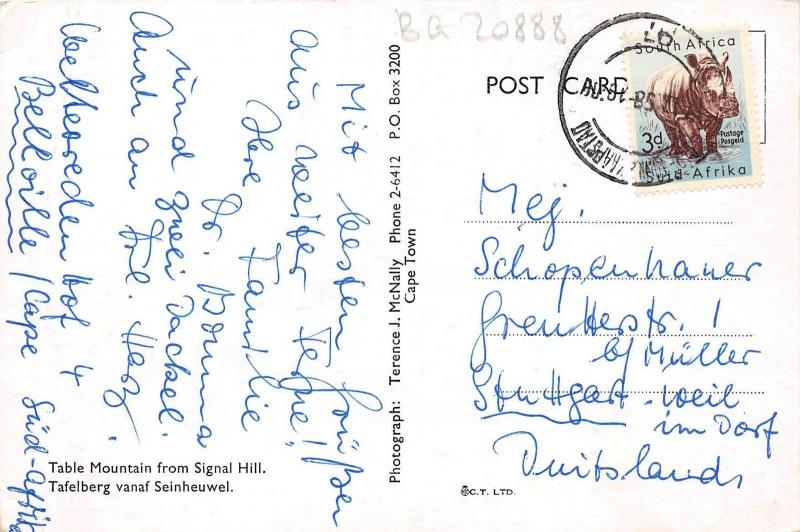 BQ 20888
Mit besten Grüßen
aus weiter Ferne!
Ihre Familie
Dr. Bonma
und zwei Dackel.
Auch an Frl. Herz.
Welteweden Hof 4
Bellville / Cape Süd-Afrika
Table Mountain from Signal Hill.
Tafelberg vanaf Seinheuwel.
Photograph: Terence J. McNally Phone 2-6412 P.O. Box 3200
Cape Town
POST CARD
South Africa
3d
Postage
Posgeld
Suid-Afrika
KAAPSTAD
Mej.
Schopenhauer
b/Müller
Stuttgart-Weil
im Dorf
Duitslands
C.T. LTD.